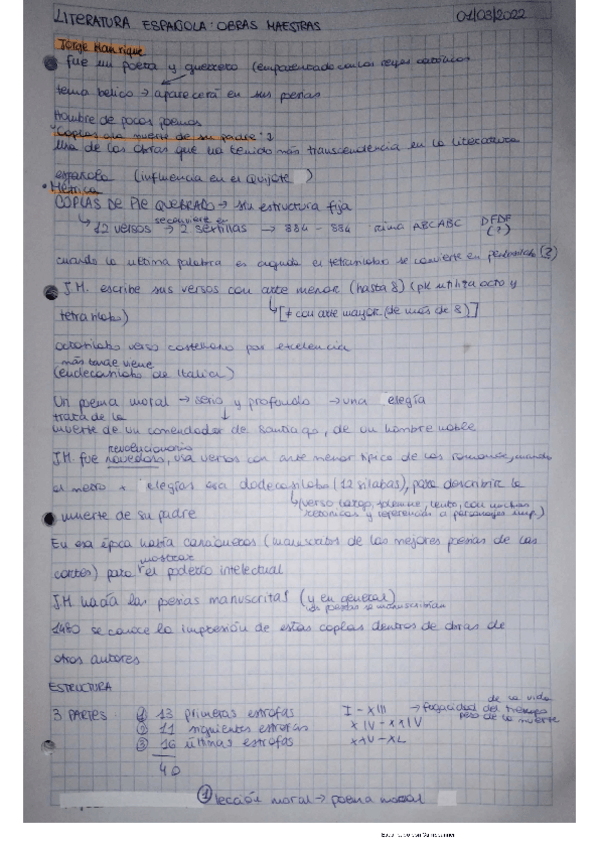 LITERATURA ESPAÑOLA: OBRAS MAESTRAS 01/03/2022
Jorge Manrique
fue un poeta y guerrero (emparentado con los reyes católicos
tema bélico → aparecerá en sus poesías
Hombre de pocos poemas
"Coplas a la muerte de su padre":
Una de las obras que ha tenido más transcendencia en la literatura
española (influencia en el Quijote)
• Métrica
COPLAS DE PIE QUEBRADO → su estructura fija
se convierte en
↳ 12 versos → 2 sextillas → 884 - 884 rima ABCABC DEFDEF (?)
cuando la última palabra es aguda el tetrasílabo se convierte en pentasílabo (?)
J.M. escribe sus versos con arte menor (hasta 8) (pk utiliza octo y
tetrasílabo) ↳ [≠ con arte mayor (de más de 8)]
octosílabo verso castellano por excelencia
más tarde viene
(endecasílabo de Italia)
Un poema moral → serio y profundo → una elegía
trata de la
muerte de un comendador de Santiago, de un hombre noble
revolucionario
J.M. fue novedoso, usa versos con arte menor típico de los romances, cuando
el metro elegías era dodecasílabo (12 sílabas), para describir la
↳ (verso largo, solemne, lento, con muchas
retóricas y referencias a personajes imp.)
muerte de su padre
En esa época había cancioneros (manuscritos de las mejores poesías de las
mostrar
cortes) para el poderío intelectual
J.M. hacía las poesías manuscritas (y en general)
los poetas se manuscribían
1480 se conoce la impresión de estas coplas dentros de obras de
otros autores
ESTRUCTURA
3 PARTES: ① 13 primeras estrofas I - XIII → fugacidad del tiempo de la vida
peso de la muerte
② 11 siguientes estrofas XIV - XXIV
③ 16 últimas estrofas XXV - XL
40
① lección moral → poema moral